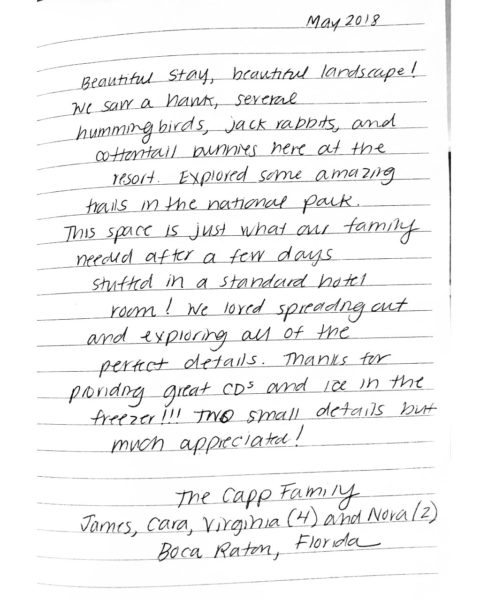 May 2018
Beautiful stay, beautiful landscape!
We saw a hawk, several
hummingbirds, jack rabbits, and
cottontail bunnies here at the
resort. Explored some amazing
trails in the national park.
This space is just what our family
needed after a few days
stuffed in a standard hotel
room! We loved spreading out
and exploring all of the
perfect details. Thanks for
providing great CDs and ice in the
freezer!!! TWO small details but
much appreciated!
The Capp Family
James, Cara, Virginia (4) and Nora (2)
Boca Raton, Florida